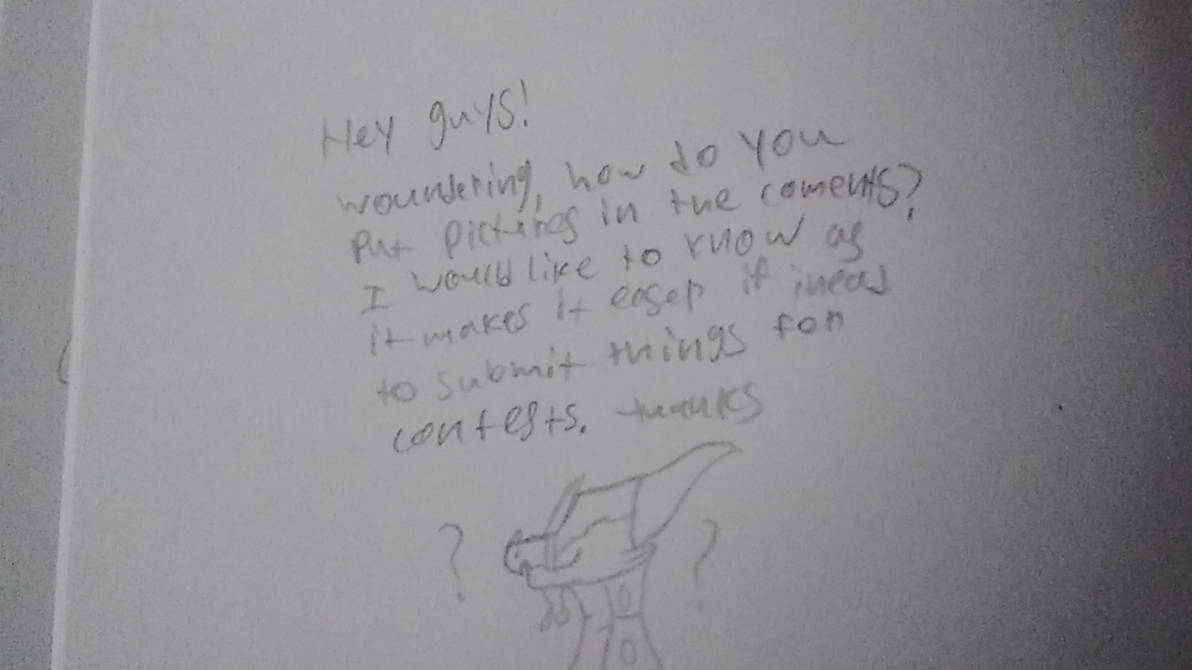 Hey guys!
woundering, how do you
put pictures in the coments?
I would like to know as
it makes it easer if ineed
to submit things for
contests. thanks
? ?